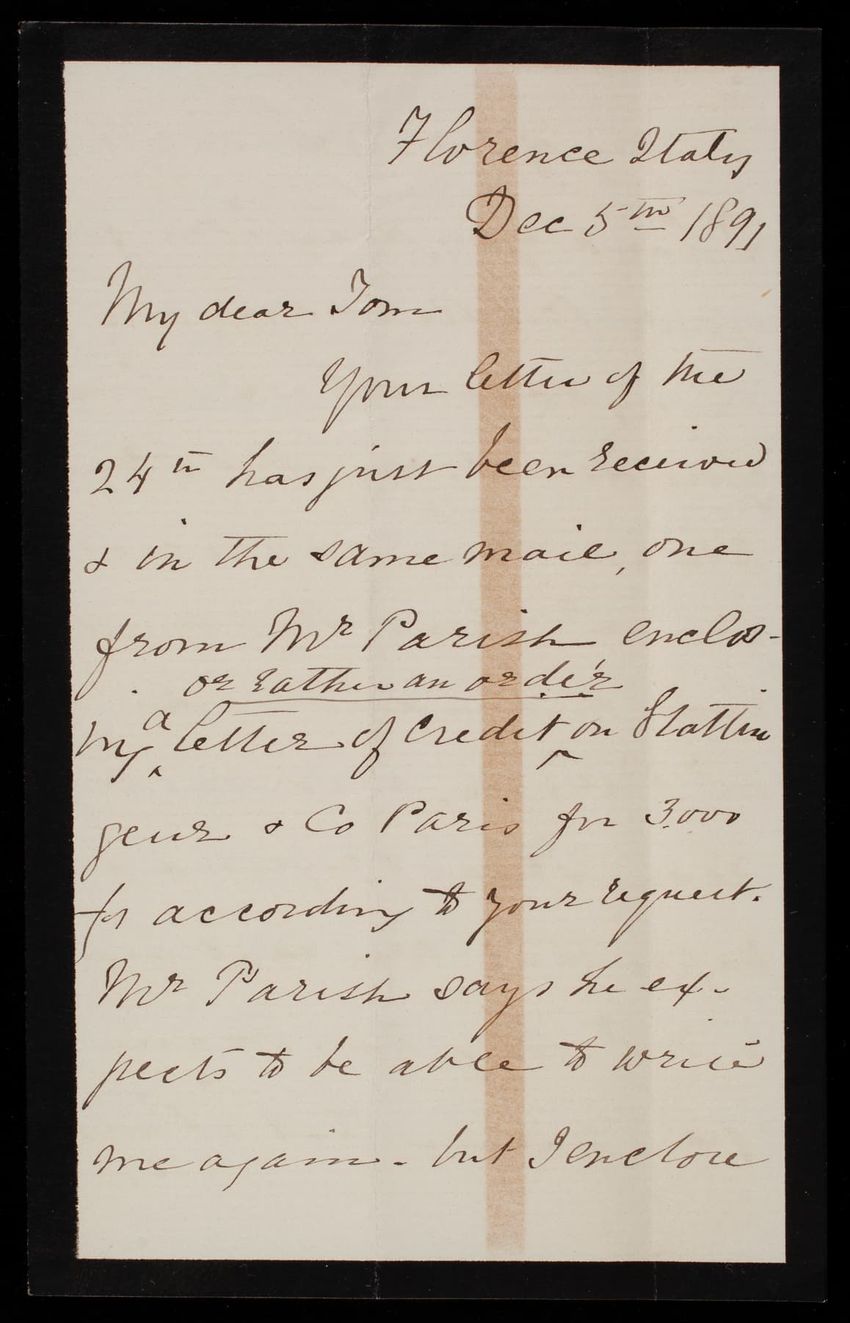 Florence Italy
Dec 5th 1891
My dear Tom
Your letter of the
24th has just been received
& in the same mail, one
from Mr Parish enclos-
or rather an order
ing a letter of credit on Hottin
geur & Co Paris for 3.000
frs according to your request.
Mr Parish says he ex-
pects to be able to write
me again - but I enclose